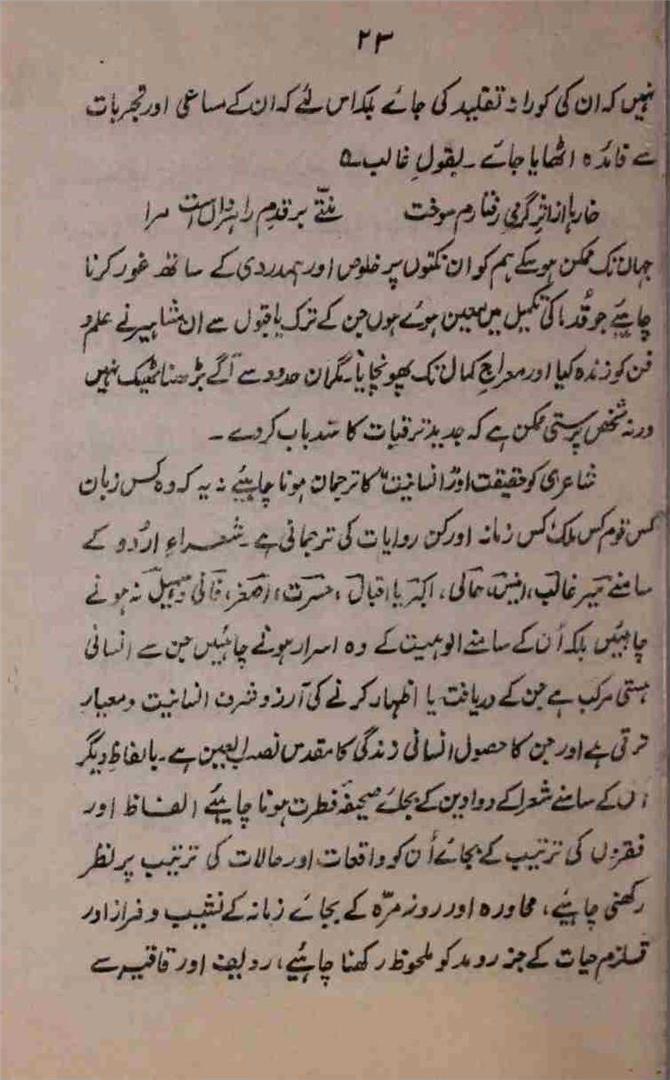 ۲۳
نہیں کہ ان کی کورانہ تقلید کی جائے بلکہ اس لئے کہ ان کے مساعی اور تجربات
سے فائدہ اٹھایا جائے ۔ بقولِ غالب ؎
خارہا از اثرِ گرمیِ رفتارم سوخت منّتے بر قدمِ راہرواں است مرا
جہاں تک ممکن ہو سکے ہم کو ان نکتوں پر خلوص اور ہمدردی کے ساتھ غور کرنا
چاہیئے جو قُدما کی تکمیل میں معین ہوئے ہوں جن کے ترک یا قبول سے ان مشاہیر نے علم و
فن کو زندہ کیا اور معراجِ کمال تک پہونچایا۔ مگر ان حدود سے آگے بڑھنا ٹھیک نہیں
ورنہ شخص پرستی ممکن ہے کہ جدید ترقیات کا سّدِ باب کر دے ۔
شاعری کو حقیقت اور انسانیت کا ترجمان ہونا چاہیئے نہ یہ کہ وہ کس زبان
کس قوم کس ملک کس زمانہ اور کن روایات کی ترجمانی ہے ۔ شعراءِ اردو کے
سامنے میر غالب، انیس، حالی، اکبر یا اقبال، حسرت، اصغر، فانی و سہیل نہ ہونے
چاہئیں بلکہ اُن کے سامنے الوہیت کے وہ اسرار ہونے چاہئیں جن سے انسانی
ہستی مرکب ہے جن کے دریافت یا اظہار کرنے کی آرزو شرفِ انسانیت و معیارِ
ترقی ہے اور جن کا حصول انسانی زندگی کا مقدس نصب العین ہے ۔ بالفاظِ دیگر
اُن کے سامنے شعرا کے دواوین کے بجائے صحیفۂ فطرت ہونا چاہیئے الفاظ اور
فقروں کی ترتیب کے بجائے اُن کو واقعات اور حالات کی ترتیب پر نظر
رکھنی چاہیئے، محاورہ اور روزمرّہ کے بجائے زمانہ کے نشیب و فراز اور
قلزمِ حیات کے جزر و مد کو ملحوظ رکھنا چاہیئے، ردیف اور قافیہ سے